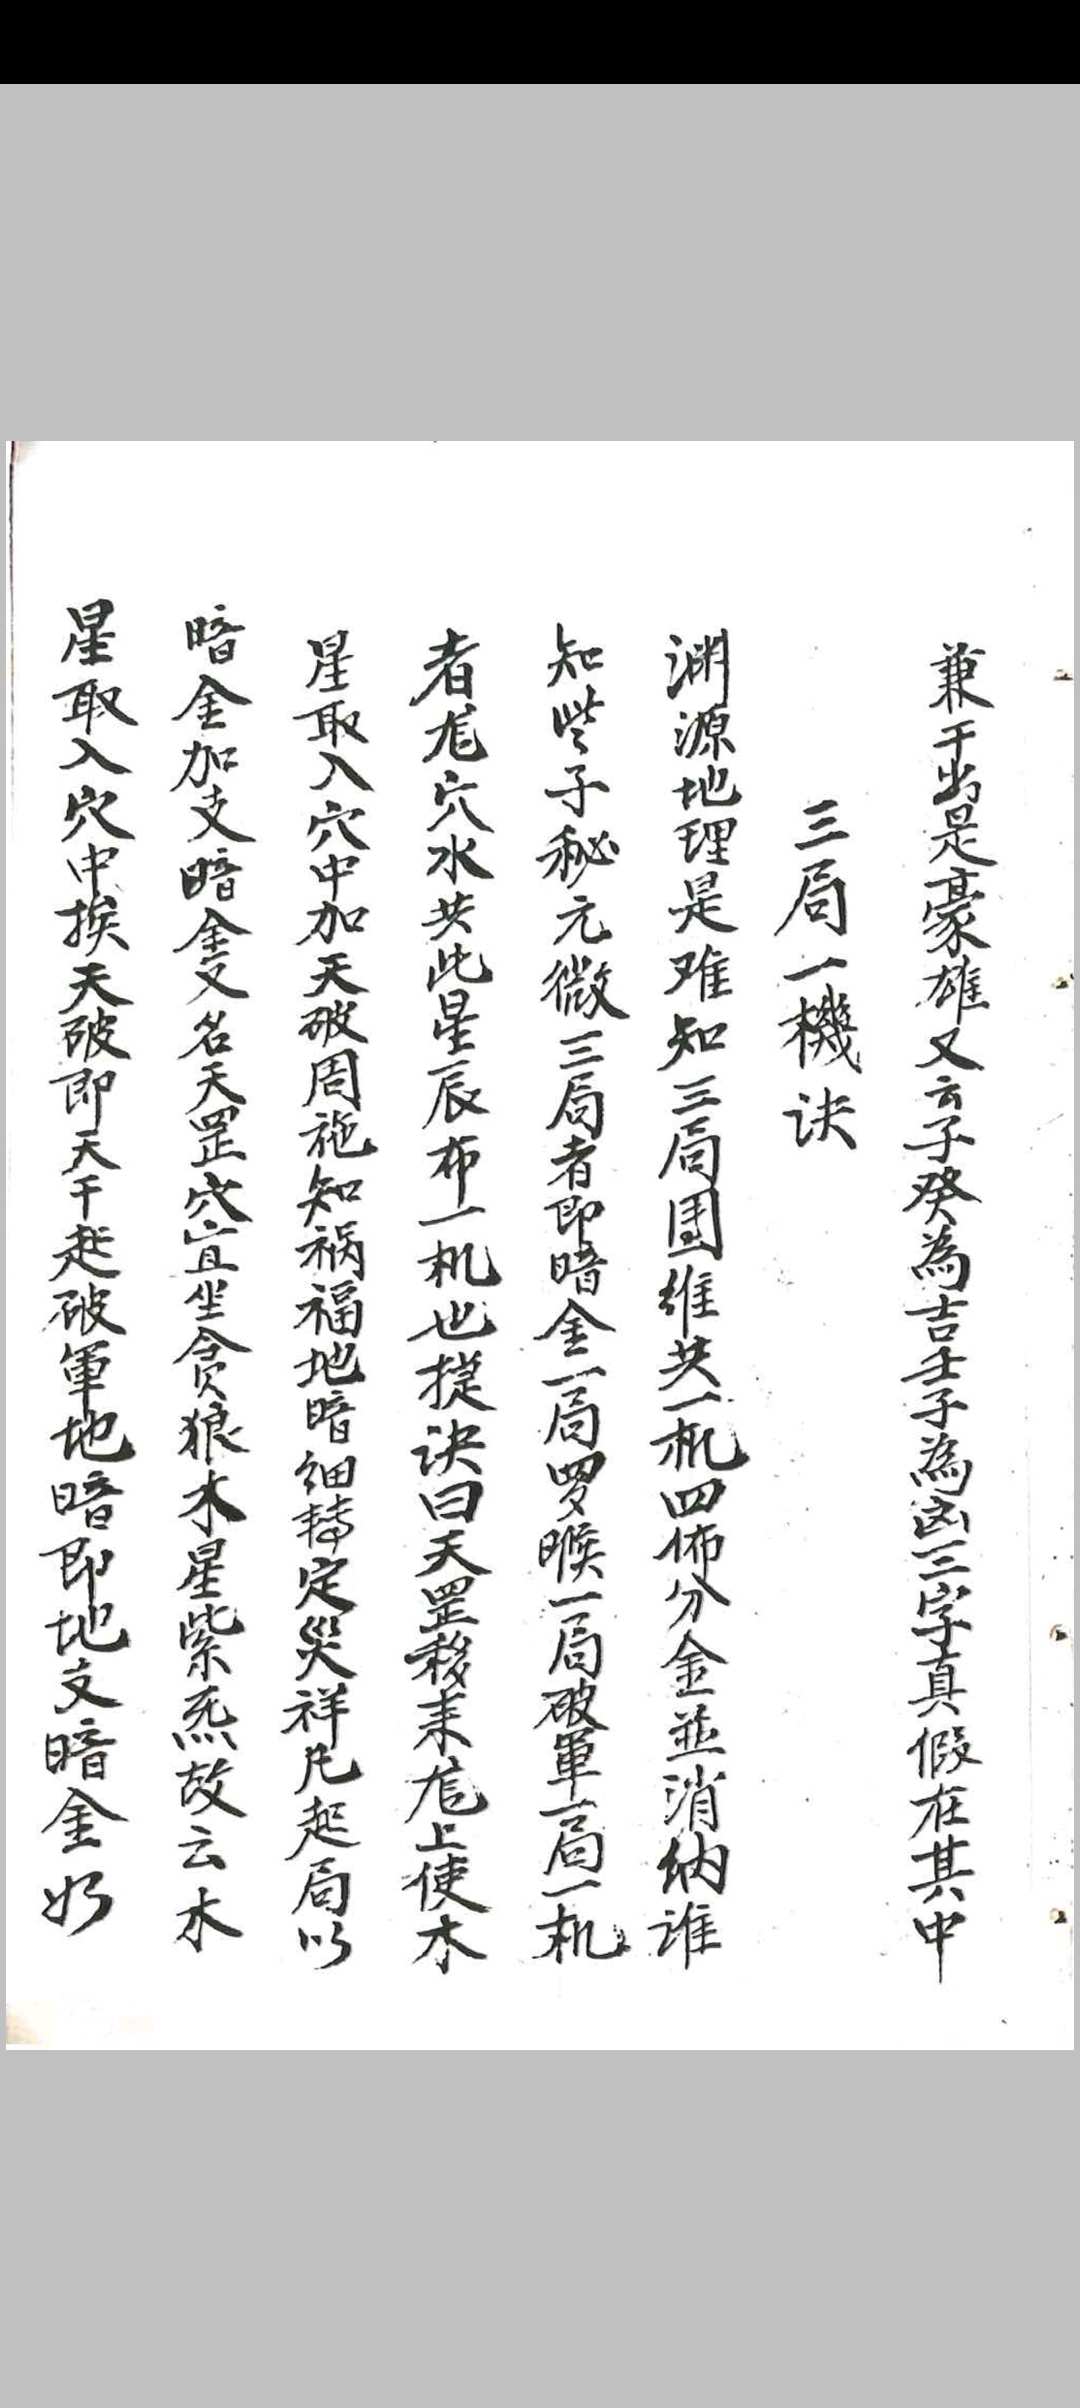 兼干出是豪雄又云子癸為吉壬子為凶三字真假在其中
三局一機诀
渊源地理是难知三局围维共一机四佈分金並消纳谁
知些子秘元微三局者即暗金一局罗睺一局破軍一局一机
者龙穴水共此星辰布一机也提诀曰天罡移来龙上使木
星取入穴中加天破周施知祸福地暗细轉定災祥凡起局以
暗金加支暗金又名天罡穴宜坐贪狼木星紫炁故云木
星取入穴中挨天破即天干起破軍地暗即地支暗金如